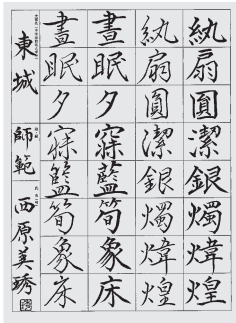 紈扇圓潔銀燭煒煌
紈扇圓潔銀燭煒煌
晝眠夕寐藍筍象床
晝眠夕寐籃筍象床
東城 師範 西原